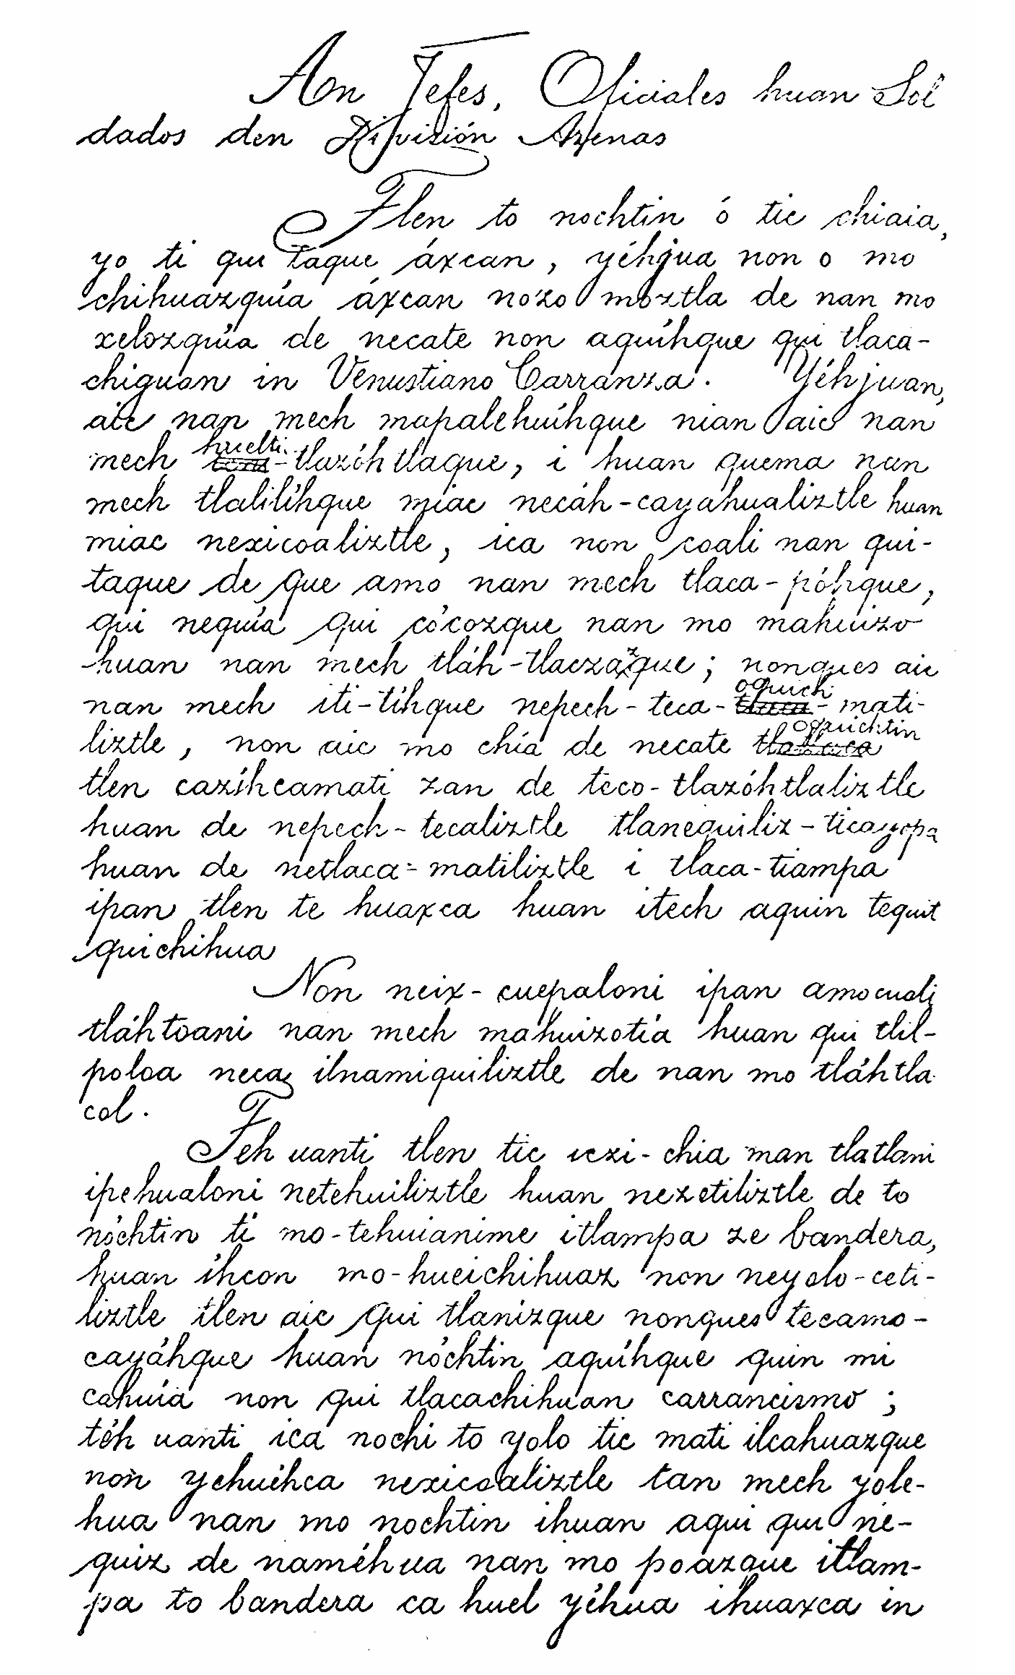 Aon Jefes, Oficiales huan Sol
dados den División Arenas
Tlen to nochtin ó tic chiaia,
yo ti qui taque áxcan, yéhjua non o mo
chihuazquía áxcan nozo moztla de nan mo
xelozquía de necate non aquíhque qui tlaca-
chiguan in Venustiano Carranza. Yéhjuan,
aic nan mech mapalehuíhque nian aic nan
mech huelti-tlazóhtlaque, i huan quema nan
mech tlalilíhque miac necáh-cayahualiztle huan
miac nexicoaliztle, ica non coali nan qui-
taque de que amo nan mech tlaca-póhque,
qui nequía qui cócozque nan mo mahuizo
huan nan mech tláh-tlazazque; nonques aic
nan mech iti-tíhque nepech-teca-oquich-mati-
liztle, non aic mo chía de necate oquichtin
tlen cazíhcamati zan de teco-tlazóhtlaliztle
huan de nepech-tecaliztle tlanequiliz-ticayopa
huan de netlaca-matiliztle i tlaca-tiampa
ipan tlen te huaxca huan itech aquin tequit
quichihua
Non neix-cuepaloni ipan amocuali
tláhtoani nan mech mahuizotía huan qui tlil-
poloa neca ilnamiquiliztle de nan mo tláhtla
col.
Teh uanti tlen tic ixi-chia man tlatlani
ipehualoni netehuiliztle huan nezetiliztle de to
nóchtin ti mo-tehuianime itlampa ze bandera,
huan íhcon mo-hueichihuaz non neyolo-ceti-
liztle tlen aic qui tlanizque nonques tecamo-
cayáhque huan nóchtin aquíhque quin mi
cahuia non qui tlacachihuan carrancismo;
téh uanti ica nochi to yolo tic mati ilcahuazque
non yehuéhca nexicoaliztle tan mech yole-
hua nan mo nochtin ihuan aqui qui ne-
quiz de naméhua nan mo poazque itlam-
pa to bandera ca huel yéhua ihuaxca in